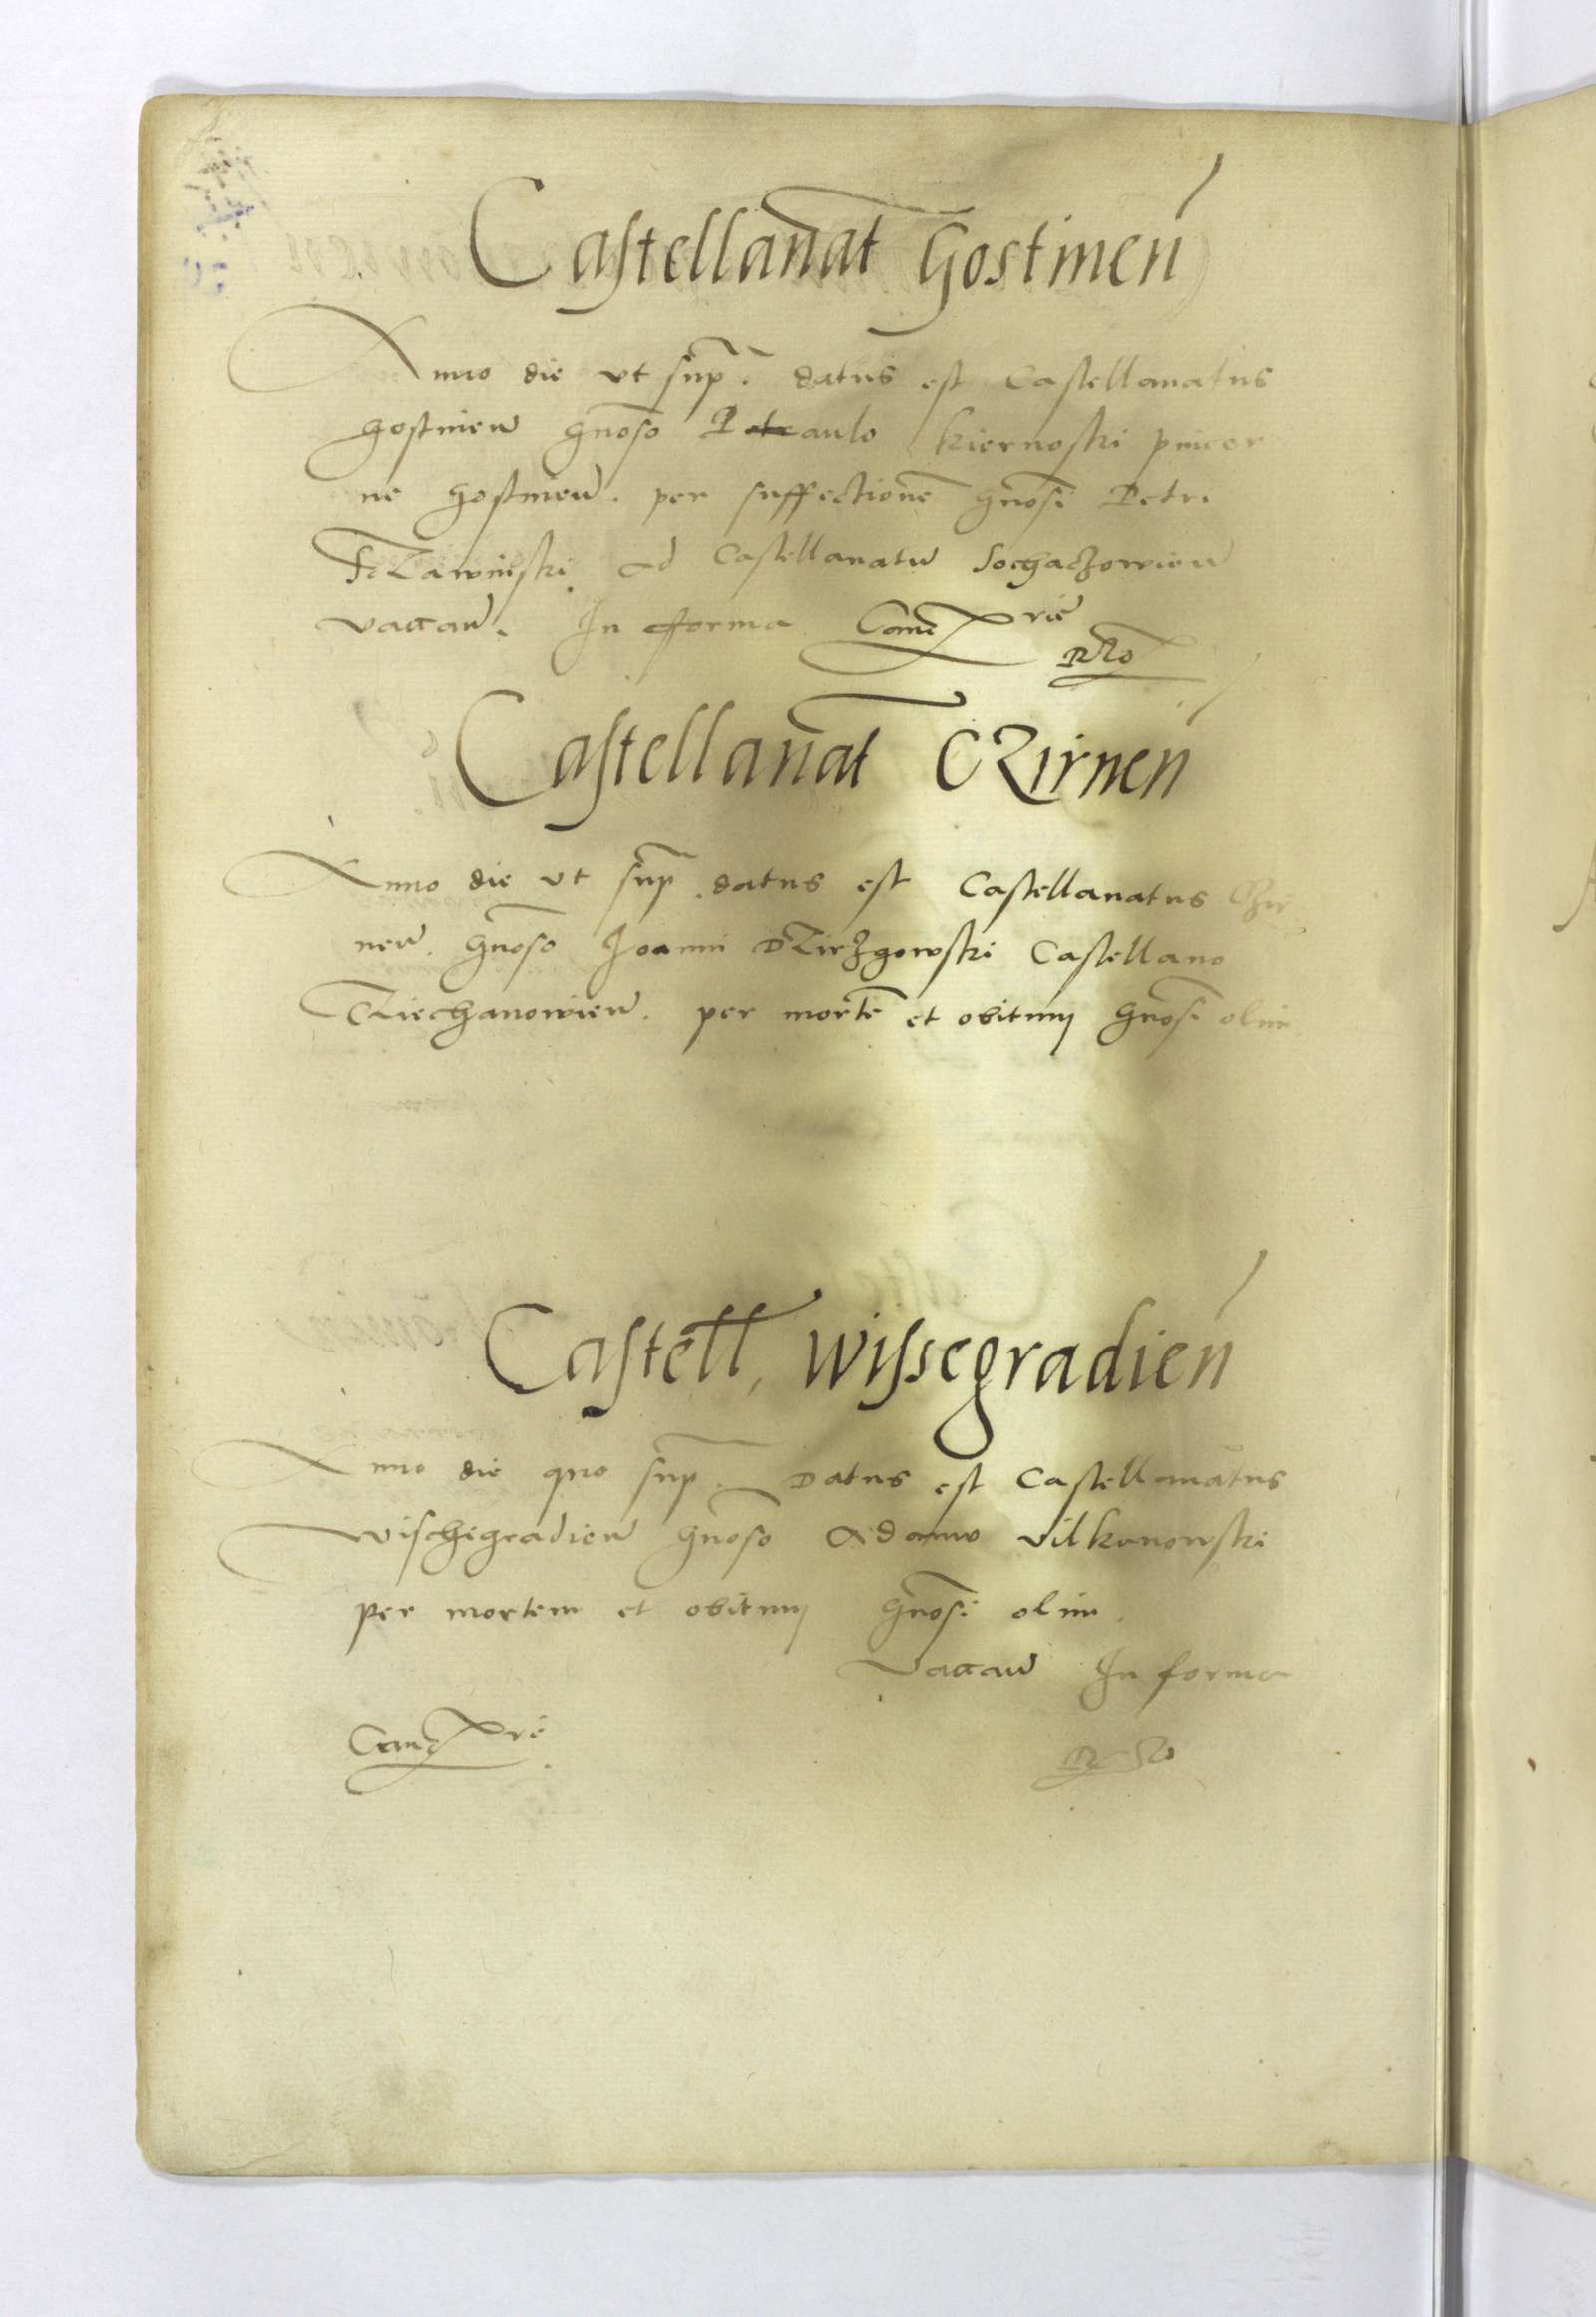 Castellanat Gostinen
Anno die vt sup. datus est Castellanatus
gostinen gnoso P aulo kiernoski pincer
ne gostinen. per suffectione gnosi Petri
ad Castellanatu Sochaczowien
vacan. In fforma Canc rie
Castellanat CZirnen
Anno die vt sup. datus est Castellanatus Czir
nen. gnoso Joanni DZirzgowski Castellano
CZiechanowien. per morte et obitum gnosi olim
Castell, wissegradien
Anno die quo sup. Datus est Castellanatus
wischegradien gnoso Adamo vilkanowski
per mortem et obitum gnosi olim.
vacan In forma
Canc rie